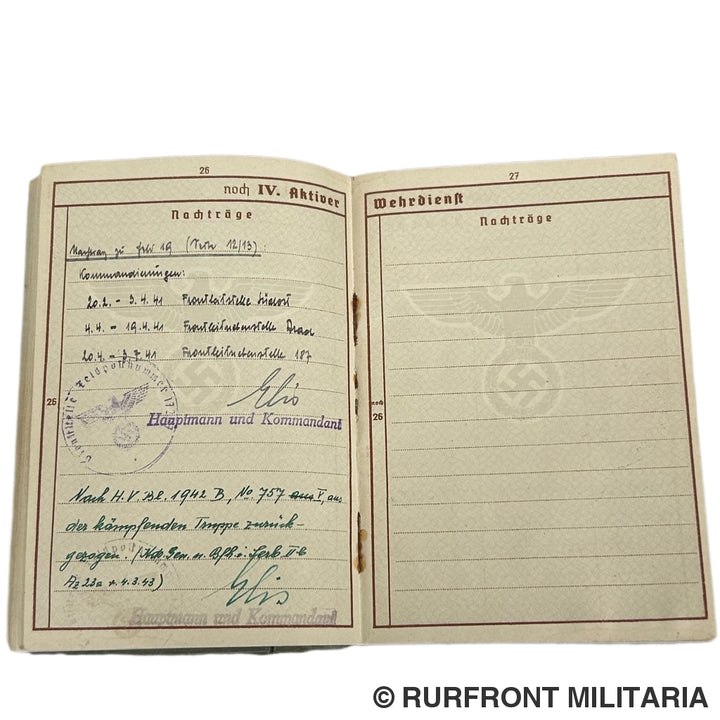 26
noch IV. Aktiver
Nachträge
Nachtrag zu Feld 19 (Seite 12/13):
Kommandierungen:
20.2. - 3.4.41 Frontleitstelle
4.4. - 19.4.41 Frontleitnebenstelle Arad
20.4. - 3.7.41 Frontleitnebenstelle 187
26
Dienststelle Feldpostnummer
Hauptmann und Kommandant
Nach H.V.Bl. 1942 B, No. 757 aus V, aus
der kämpfenden Truppe zurück-
gezogen. (Kdr. Gen. u. Bfh. i. Serb. II b
Az 23a v. 4.3.43)
Hauptmann und Kommandant
27
Wehrdienst
Nachträge
noch
26
© RURFRONT MILITARIA